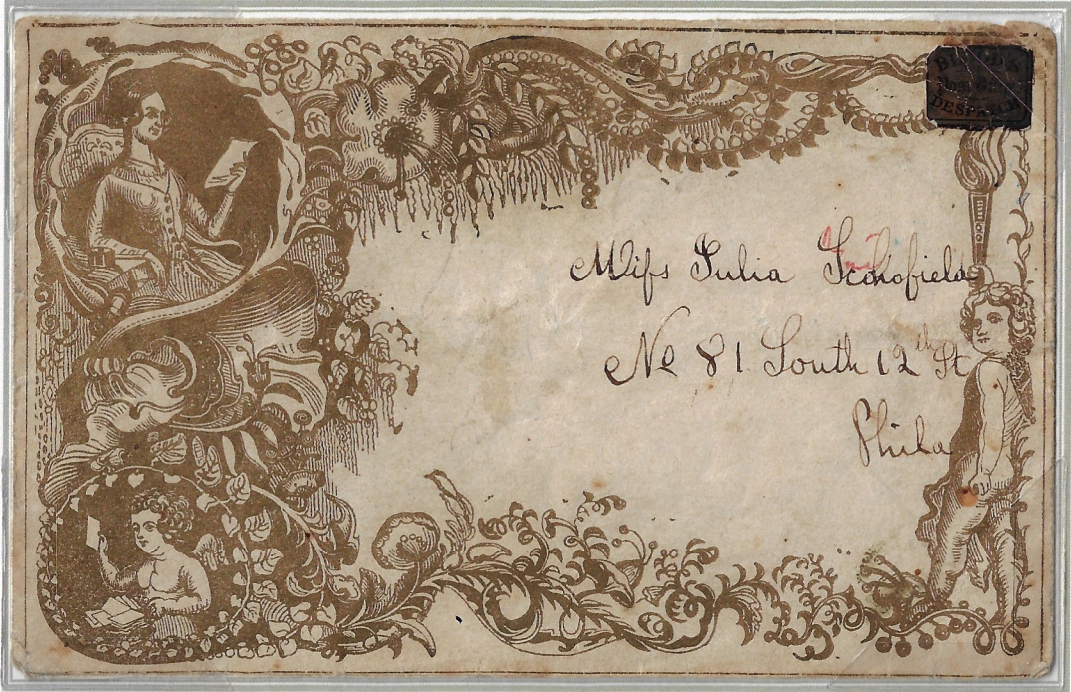 BLOOD'S
DESPATCH
Miſs Julia Schofield
No 81 South 12th St
Phila